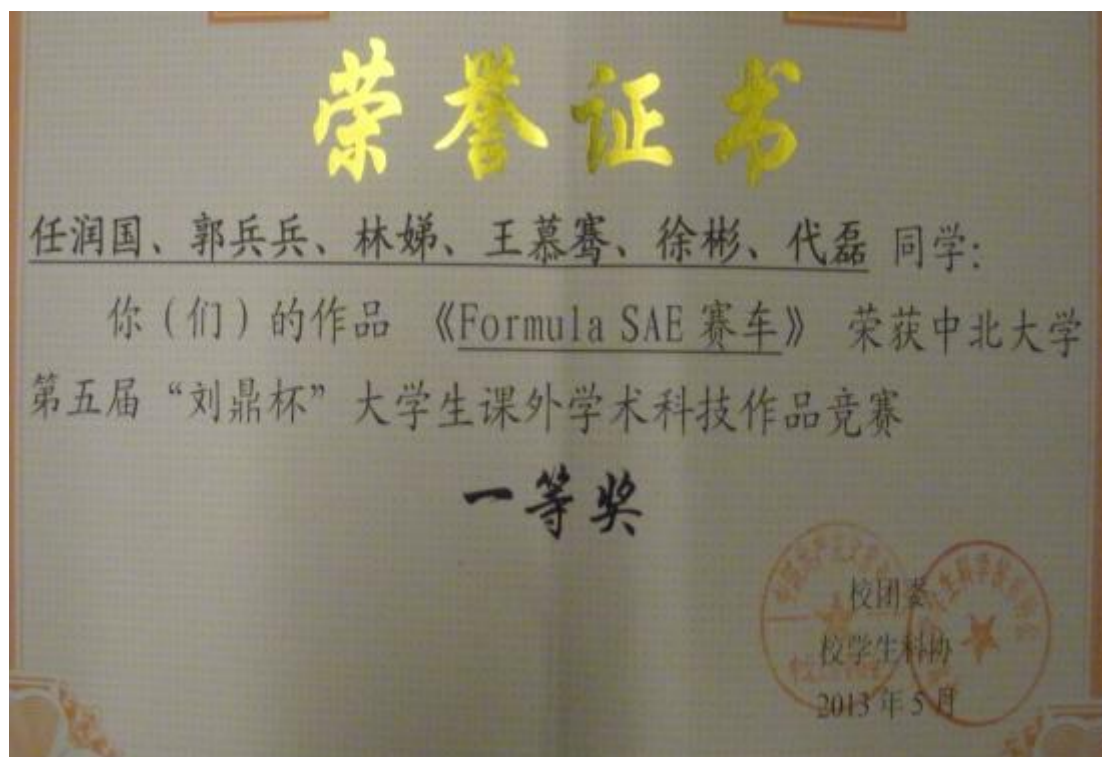 荣誉证书
任润国、郭兵兵、林娣、王慕骞、徐彬、代磊 同学:
你(们)的作品 《Formula SAE 赛车》 荣获中北大学
第五届“刘鼎杯”大学生课外学术科技作品竞赛
一等奖
校团委
校学生科协
2013年5月